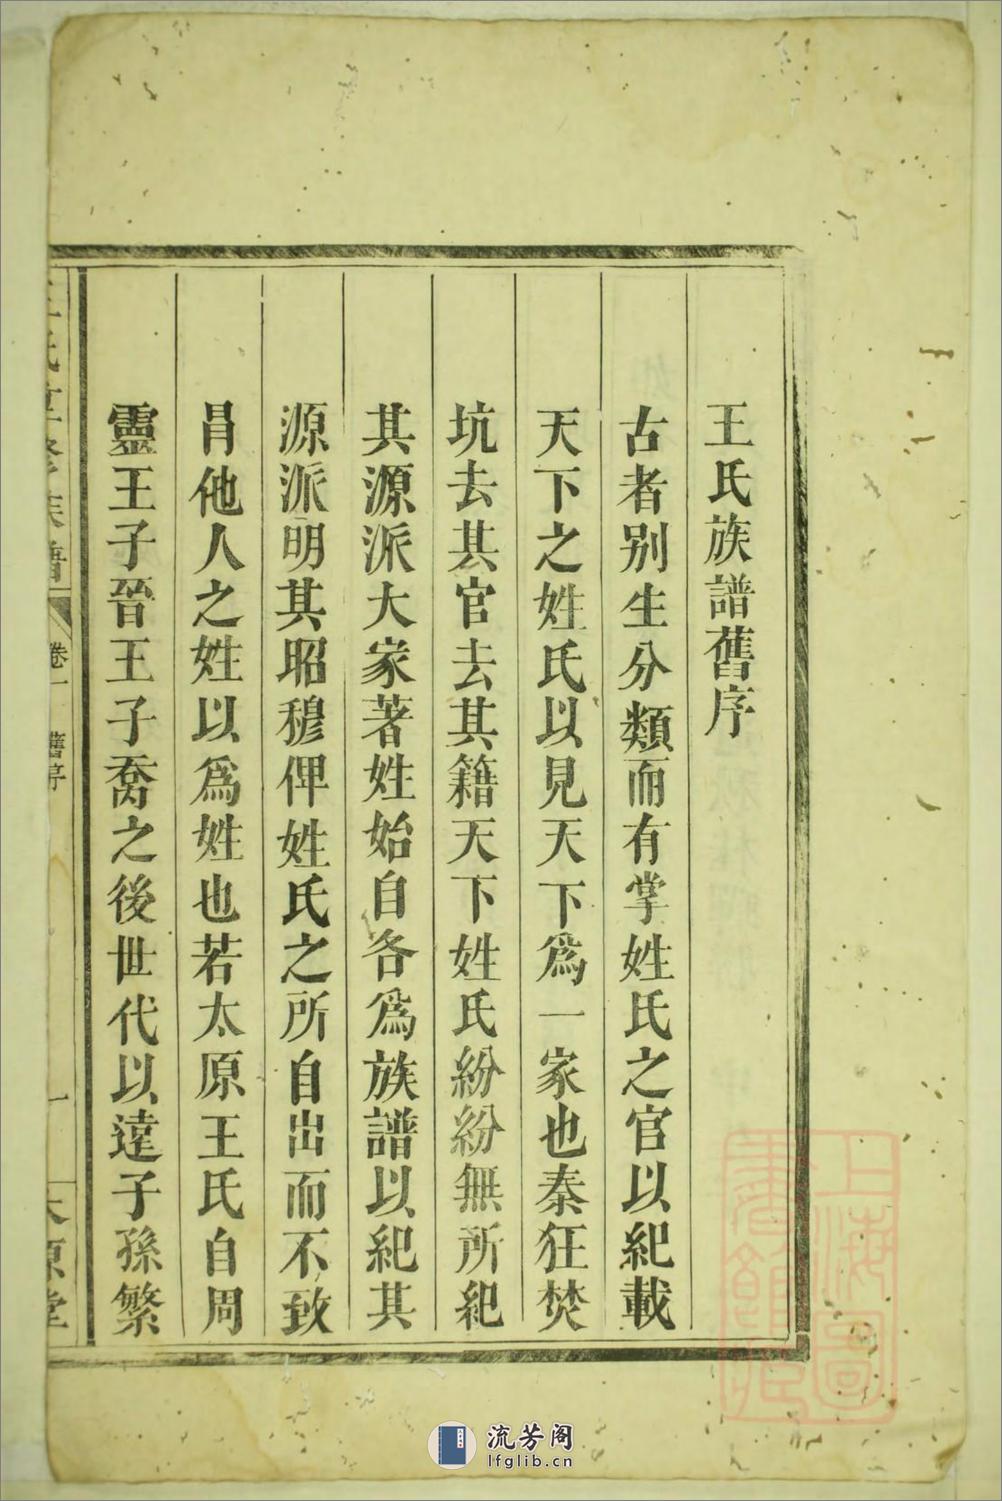 王氏族譜舊序
古者别生分類而有掌姓氏之官以紀載
天下之姓氏以見天下爲一家也秦狂焚
坑去其官去其籍天下姓氏紛紛無所紀
其源派大家著姓始自各爲族譜以紀其
源派明其昭穆俾姓氏之所自出而不致
冐他人之姓以爲姓也若太原王氏自周
靈王子晉王子喬之後世代以逹子孫繁
卷一 舊序 一
上海圖書館藏
流芳阁
lfglib.cn